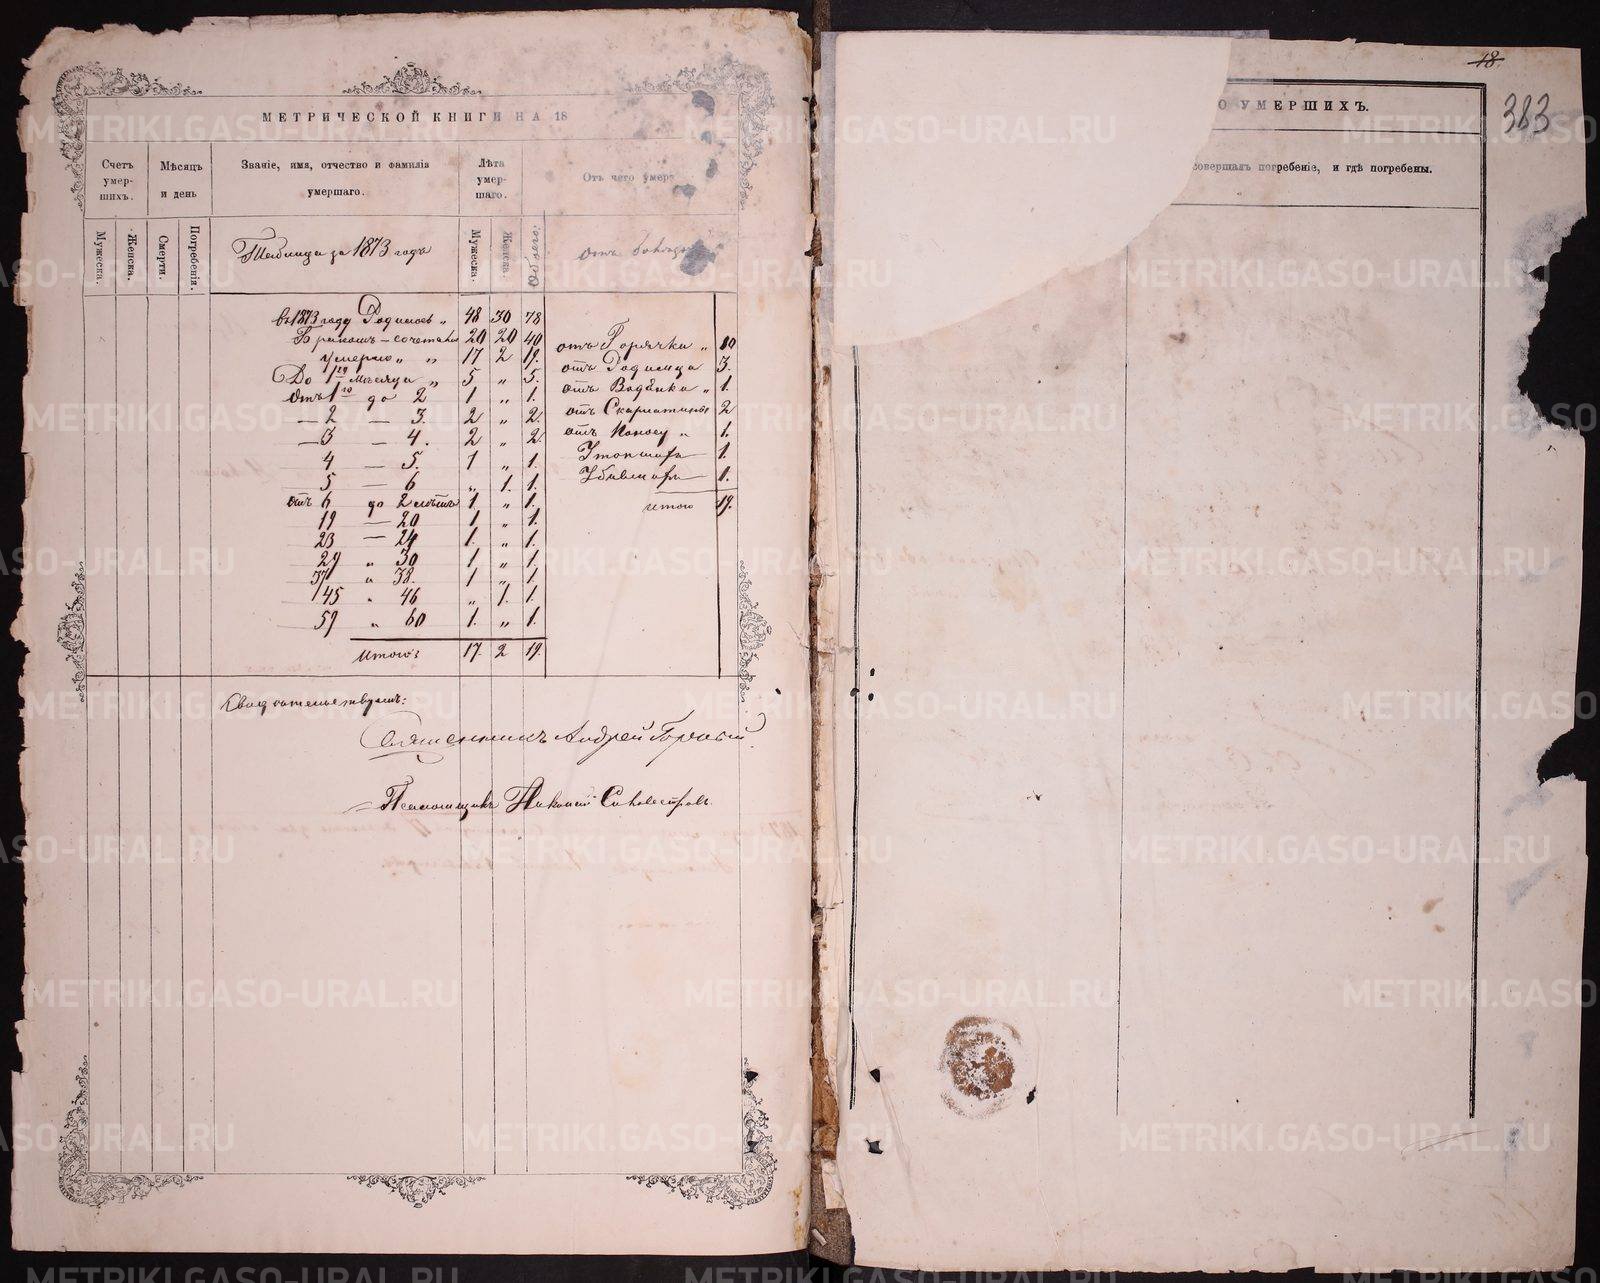 МЕТРИЧЕСКОЙ КНИГИ НА 18
Счетъ умерших.
Мѣсяцъ и день
Званіе, имя, отчество и фамилія умершаго.
Лѣта умершаго.
Отъ чего умеръ
Мужеска.
Женска.
Смерти.
Погребенія.
Таблица за 1873 годъ
Мужеска.
Женска.
Обоего:
отъ болѣзни
въ 1873 году Родилось „ 48 30 78
Бракомъ – сочетались 20 20 40
Умерло „ „ 17 2 19.
До 1го мѣсяца „ 5 „ 5.
Отъ 1го до 2 1 „ 1.
— 2 — 3. 2 „ 2.
— 3 — 4. 2 „ 2.
4 — 5. 1 „ 1.
5 — 6 „ 1. 1.
отъ 6 до 2 лѣтъ 1 „ 1.
19 — 20 1 „ 1.
23 — 24 1. „ 1.
29 „ 30 1 „ 1.
37 „ 38. 1 „ 1.
45 „ 46 „ 1. 1.
59 „ 60 1. „ 1.
Итого: 17. 2 19.
отъ Горячки „ 10
отъ Родимца 3.
отъ Водянки „ 1.
отъ Скарлатины 2
отъ Поносу „ 1.
1.
1.
итого 19.
Свидѣтельствуемъ:
Священникъ Андрей
Псаломщикъ Николай Сильвестровъ.
18.
383
О УМЕРШИХЪ.
совершалъ погребеніе, и гдѣ погребены.
METRIKI.GASO-URAL.RU